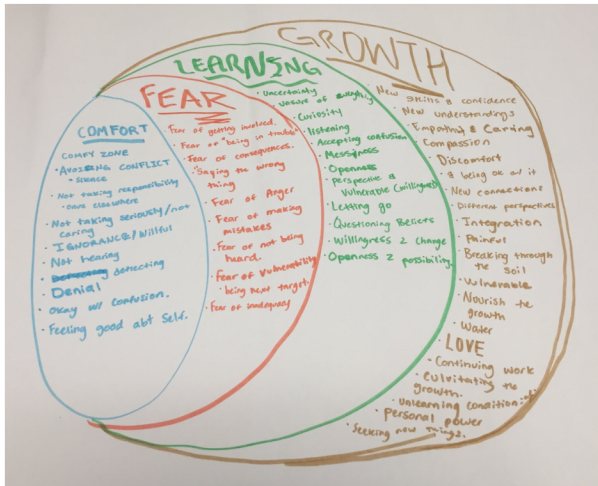 GROWTH
LEARNING
FEAR
COMFORT
COMFY ZONE
• AVOIDING CONFLICT
• SILENCE
• Not taking responsibility
• care elsewhere
• Not taking seriously/not
caring
• IGNORANCE/Willful
• Not hearing
• deflecting
• Denial
• Okay w/ confusion.
• Feeling good abt self.
• Fear of getting involved.
• Fear of "being in trouble"
• Fear of consequences.
• "Saying the wrong
thing
• Fear of Anger
• Fear of making
mistakes
• Fear of not being
heard.
• Fear of Vulnerability
• being next target.
• Fear of inadequacy
• Uncertainty
• unsure of everything
• Curiosity
• listening
• Accepting confusion
• Messiness
• Openness
• perspective &
Vulnerable (willingness)
• Letting go
• Questioning Beliefs
• Willingness 2 change
• Openness 2 possibility.
• New skills & confidence
• New understandings
• Empathy & Caring
• Compassion
• Discomfort
& being ok w/ it
• New connections
• Different perspectives
• Integration
• Painful
• Breaking through
the soil
• Vulnerable
• Nourish the
growth
• Water
• LOVE
• Continuing work
• Culvitating the
growth.
• unlearning
• personal power
• Seeking new things.